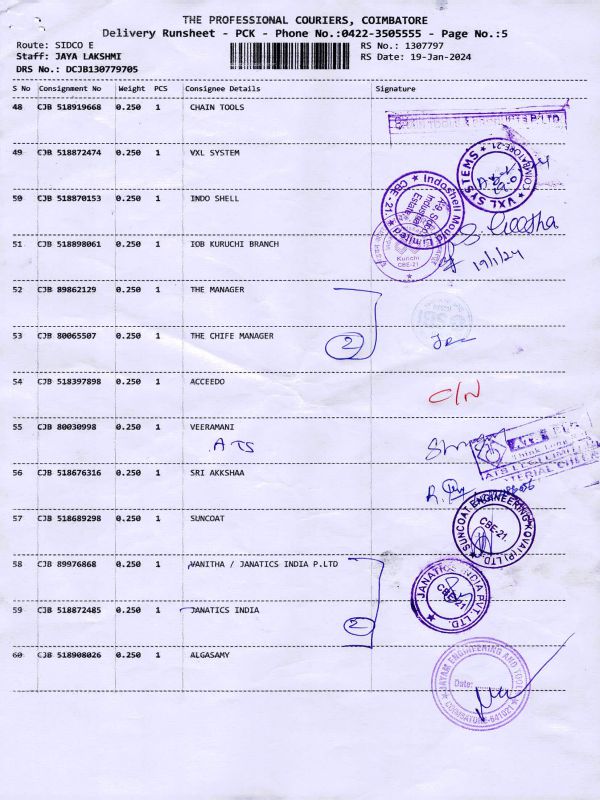 THE PROFESSIONAL COURIERS, COIMBATORE
Delivery Runsheet - PCK - Phone No.:0422-3505555 - Page No.:5
Route: SIDCO E RS No.: 1307797
Staff: JAYA LAKSHMI RS Date: 19-Jan-2024
DRS No.: DCJB130779705
S No Consignment No Weight PCS Consignee Details Signature
48 CJB 518919668 0.250 1 CHAIN TOOLS
49 CJB 518872474 0.250 1 VXL SYSTEM
VXL SYSTEMS COIMBATORE-21
50 CJB 518870153 0.250 1 INDO SHELL
Indoshell Mould Limited CBE - 21.
51 CJB 518898061 0.250 1 IOB KURUCHI BRANCH
Kurichi
CBE-21
19/1/24
52 CJB 89862129 0.250 1 THE MANAGER
53 CJB 80065507 0.250 1 THE CHIFE MANAGER
2
54 CJB 518397898 0.250 1 ACCEEDO
C/N
55 CJB 80030998 0.250 1 VEERAMANI
ATS
56 CJB 518676316 0.250 1 SRI AKKSHAA
57 CJB 518689298 0.250 1 SUNCOAT
SUNCOAT ENGINEERING KOVAI (P) LTD
CBE-21.
58 CJB 89976868 0.250 1 VANITHA / JANATICS INDIA P.LTD
JANATICS INDIA PVT. LTD.
CBE-21
59 CJB 518872485 0.250 1 JANATICS INDIA
2
60 CJB 518908026 0.250 1 ALGASAMY
JAYAM ENGINEERING AND TOOL
Date:
COIMBATORE-641021